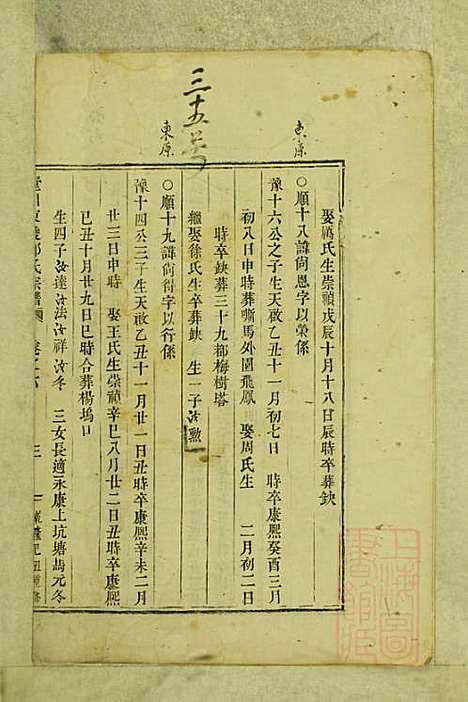 三十五号
東原
東原
娶馮氏生崇禎戊辰十月十八日辰時卒葬缺
○順十八諱尚恩字以榮係
豫十六公之子生天啟乙丑十一月初七日 時卒康熙癸酉三月
初八日申時葬嘶馬外園飛鳳 娶周氏生 二月初二日
時卒缺葬三十九都梅樹塔
繼娶徐氏生卒葬缺 生一子汝勲
○順十九諱尚得字以行係
豫十四公三子生天啟乙丑十一月廿一日丑時卒康熙辛未二月
廿三日申時 娶王氏生崇禎辛巳八月廿二日丑時卒康熙
己丑十月廿九日巳時合葬楊塢口
生四子汝達汝法汝祥汝冬 三女長適永康上坑塘馬元冬
氏宗譜 卷之六 三
上海圖書館藏